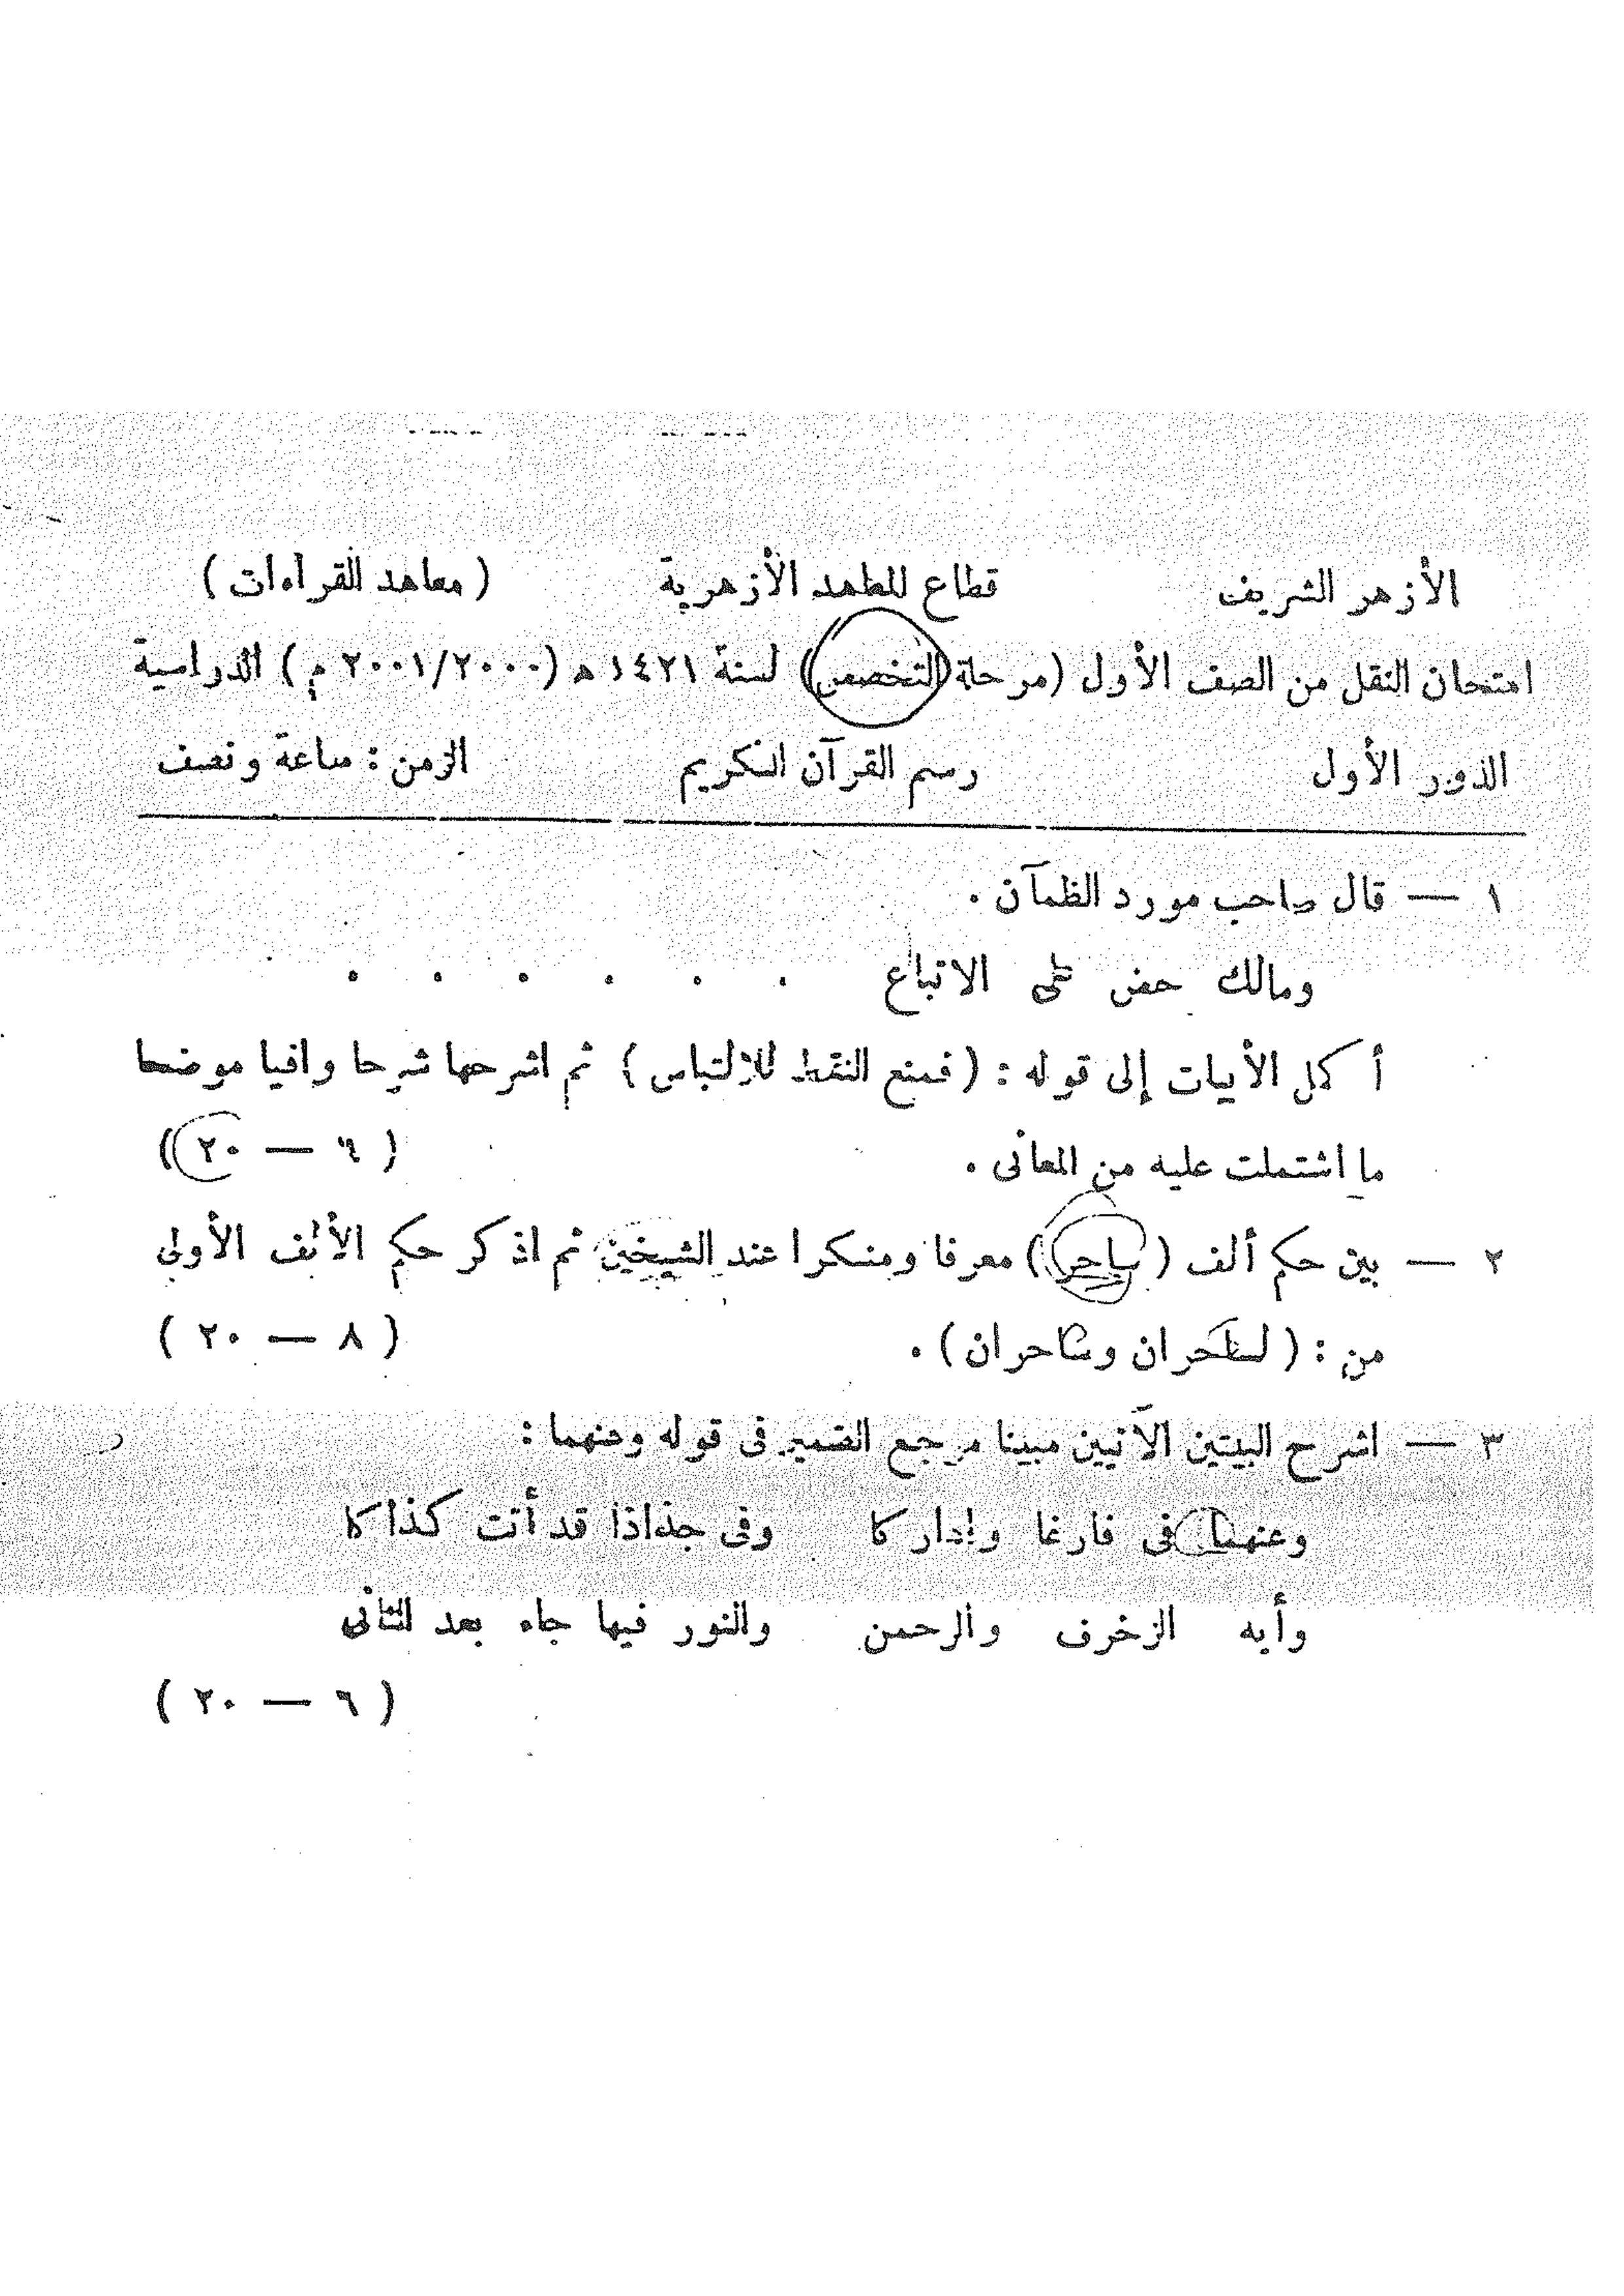 الأزهر الشريف قطاع للطهد الأزهرية ( معاهد القراءات )
امتحان النقل من الصف الأول (مرحلة التخصص) لسنة ١٤٢١ ه (٢٠٠١/٢٠٠٠ م ) الدراسية
الدور الأول رسم القرآن الكريم الزمن : ساعة ونصف
١ — قال صاحب مورد الظمآن .
ومالك حض على الاتباع . . . . . .
أكل الأبيات إلى قوله : ( فمنع النقط للالتباس ) ثم اشرحها شرحا وافيا موضحا
ما اشتملت عليه من المعانى . ( ٦ — ٢٠ )
٢ — بين حكم ألف ( ساحر ) معرفا ومنكرا عند الشيخين ثم اذكر حكم الألف الأولى
من : ( لساحران وساحران ) . ( ٨ — ٢٠ )
٣ — اشرح البيتين الآتيين مبينا مرجع الضمير فى قوله وعنهما :
وعنهما فى فارغا وادار كا وفى جذاذا قد أتت كذا كا
وأيه الزخرف والرحمن والنور فيها جاء بعد الثانى
( ٦ — ٢٠ )